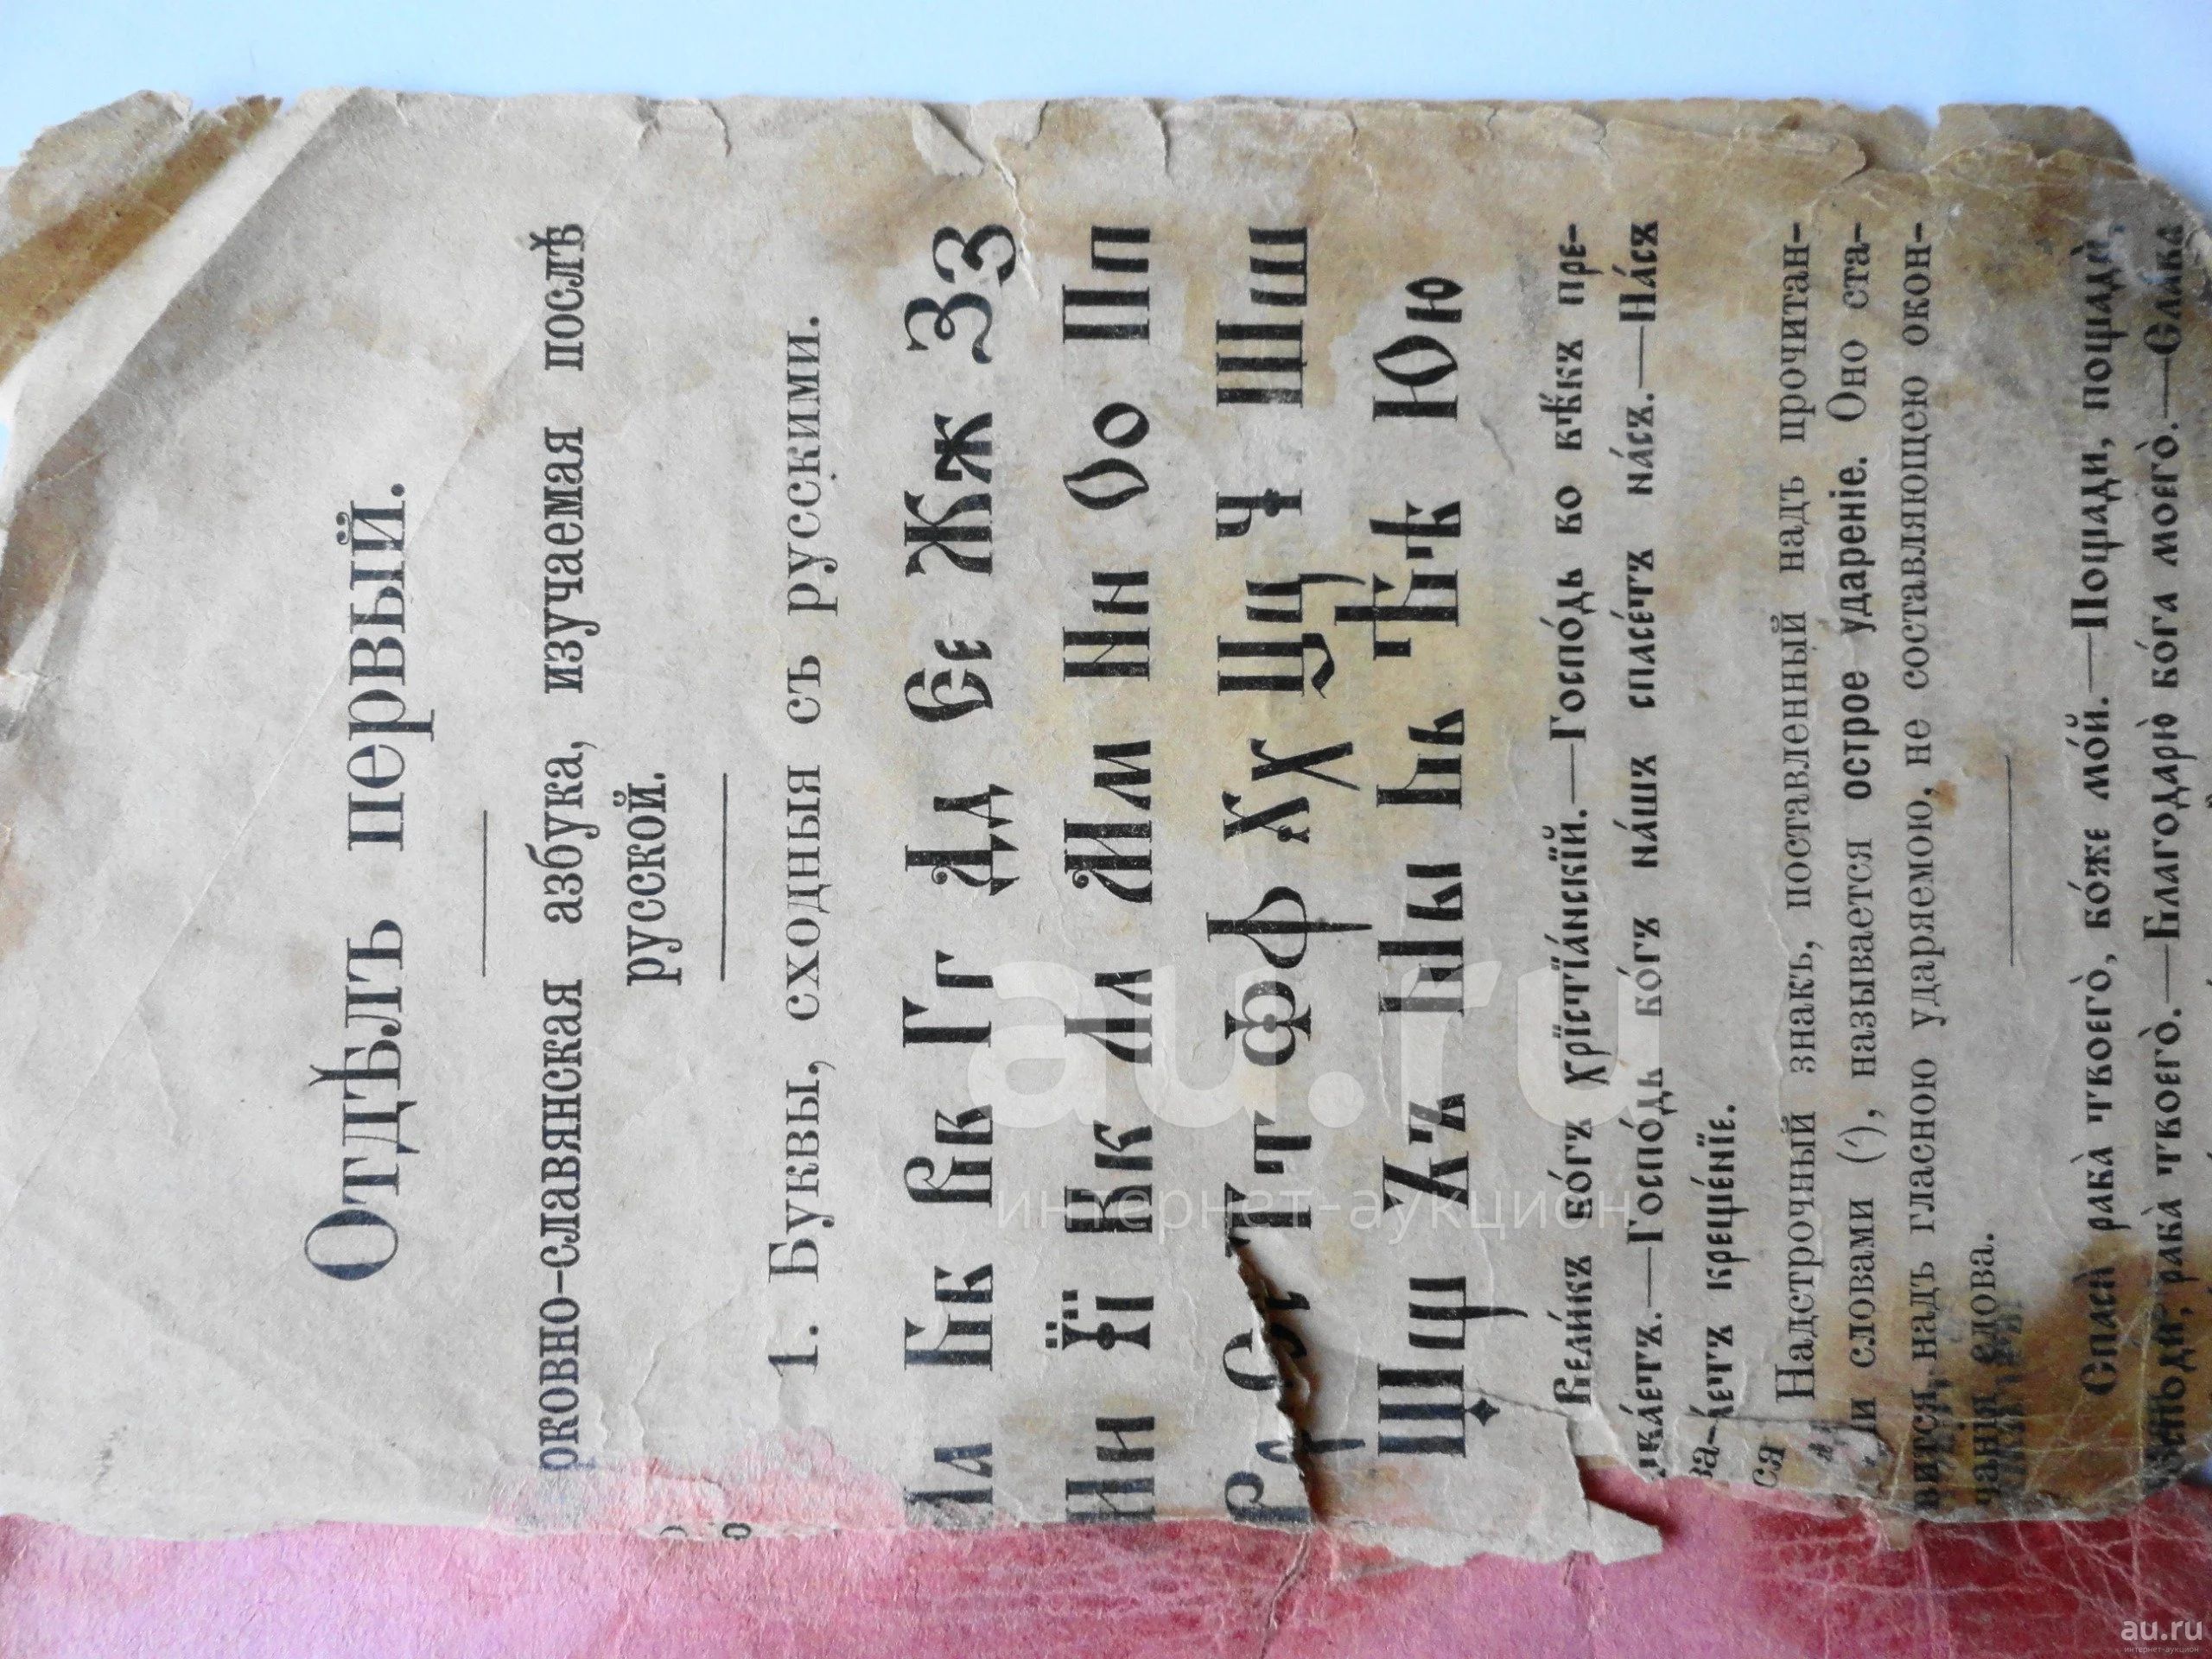 Отдѣлъ первый.
рковно-славянская азбука, изучаемая послѣ
русской.
1. Буквы, сходныя съ русскими.
Аа Бб Вв Гг Дд Єє Жж Зз
Ии Її Кк Лл Мм Нн Оо Пп
Рр Сс Тт Фф Хх Цц Ч Шш
Щщ Ъъ Ыы Ьь Ѣѣ Юю
Вели́къ бо́гъ хрїстїа́нскїй.—Госпо́дь во вѣ́къ пре-
ыва́етъ.—Госпо́дь бо́гъ на́шъ спасе́тъ на́съ.—На́съ
спаса́етъ креще́нїе.
Надстрочный знакъ, поставленный надъ прочитан-
ми словами (´), называется острое ударенїе. Оно ста-
вится надъ гласною ударяемою, не составляющею окон-
чанія слова.
Спасѝ рабà твоегò, бо́же мо́й.—Пощади, пощадѝ,
рабà твоегò.—Благодарю̀ бо́га моегò.—Слава
au.ru
интернет-аукцион
au.ru
интернет-аукцион